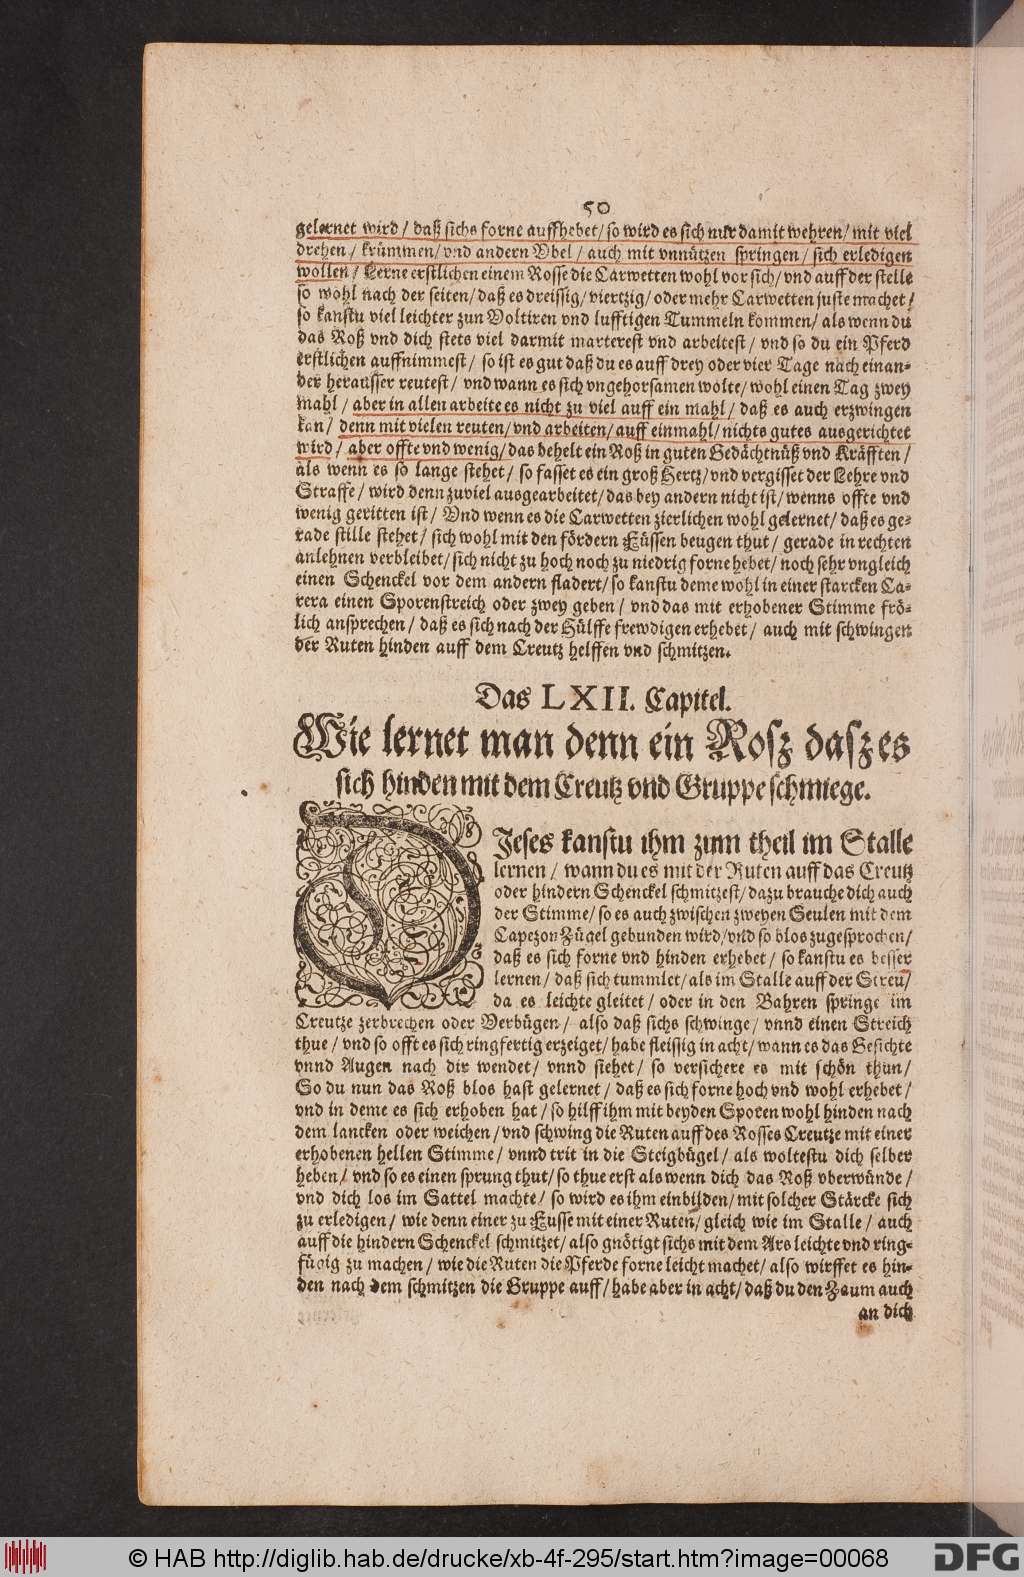 50
gelernet wird / daß sichs forne auffhebet / so wird es sich nur damit wehren / mit viel
drehen / krümmen / vnd andern Vbel / auch mit vnnützen springen / sich erledigen
wollen / Lerne erstlichen einem Rosse die Carwetten wohl vor sich / vnd auff der stelle
so wohl nach der seiten / daß es dreissig / viertzig / oder mehr Carwetten juste machet /
so kanstu viel leichter zun Voltiren vnd lufftigen Tummeln kommen / als wenn du
das Roß vnd dich stets viel darmit marterest vnd arbeitest / vnd so du ein Pferd
erstlichen auffnimmest / so ist es gut daß du es auff drey oder vier Tage nach einan-
der heraüsser reutest / vnd wann es sich vngehorsamen wolte / wohl einen Tag zwey
mahl / aber in allen arbeite es nicht zu viel auff ein mahl / daß es auch erzwingen
kan / denn mit vielen reuten / vnd arbeiten / auff einmahl / nichts gutes ausgerichtet
wird / aber offte vnd wenig / das behelt ein Roß in guten Gedächtnüß vnd Kräfften /
als wenn es so lange stehet / so fasset es ein groß Hertz / vnd vergisset der Lehre vnd
Straffe / wird denn zuviel ausgearbeitet / das bey andern nicht ist / wenns offte vnd
wenig geritten ist / Vnd wenn es die Carwetten zierlichen wohl gelernet / daß es ge-
rade stille stehet / sich wohl mit den fördern Füssen beugen thut / gerade in rechten
anlehnen verbleibet / sich nicht zu hoch noch zu niedrig forne hebet / noch sehr vngleich
einen Schenckel vor dem andern fladert / so kanstu deme wohl in einer starcken Ca-
rera einen Sporenstreich oder zwey geben / vnd das mit erhobener Stimme frö-
lich ansprechen / daß es sich nach der Hülffe frewdigen erhebet / auch mit schwingen
der Ruten hinden auff dem Creutz helffen vnd schmitzen.
Das LXII. Capitel.
Wie lernet man denn ein Rosz dasz es
sich hinden mit dem Creutz vnd Gruppe schmiege.
DJeses kanstu ihm zum theil im Stalle
lernen / wann du es mit der Ruten auff das Creutz
oder hindern Schenckel schmitzest / dazu brauche dich auch
der Stimme / so es auch zwischen zweyen Seulen mit dem
Capezon Zügel gebunden wird / vnd so blos zugesprochen /
daß es sich forne vnd hinden erhebet / so kanstu es besser
lernen / daß sich tummlet / als im Stalle auff der Streu /
da es leichte gleitet / oder in den Bahren springe im
Creutze zerbrechen oder Verbügen / also daß sichs schwinge / vnnd einen Streich
thue / vnd so offt es sich ringfertig erzeiget / habe fleissig in acht / wann es das Gesichte
vnnd Augen nach dir wendet / vnnd siehet / so versichere es mit schön thun /
So du nun das Roß blos hast gelernet / daß es sich forne hoch vnd wohl erhebet /
vnd in deme es sich erhoben hat / so hilff ihm mit beyden Sporen wohl hinden nach
dem lancken oder weichen / vnd schwing die Ruten auff des Rosses Creutze mit einer
erhobenen hellen Stimme / vnnd trit in die Steigbügel / als woltestu dich selber
heben / vnd so es einen sprung thut / so thue erst als wenn dich das Roß vberwünde /
vnd dich los im Sattel machte / so wird es ihm einbilden / mit solcher Stärcke sich
zu erledigen / wie denn einer zu Fusse mit einer Ruten / gleich wie im Stalle / auch
auff die hindern Schenckel schmitzet / also gnötigt sichs mit dem Ars leichte vnd ring-
fügig zu machen / wie die Ruten die Pferde forne leicht machet / also wirffet es hin-
den nach dem schmitzen die Gruppe auff / habe aber in acht / daß du den Zaum auch
an dich
© HAB http://diglib.hab.de/drucke/xb-4f-295/start.htm?image=00068
DFG